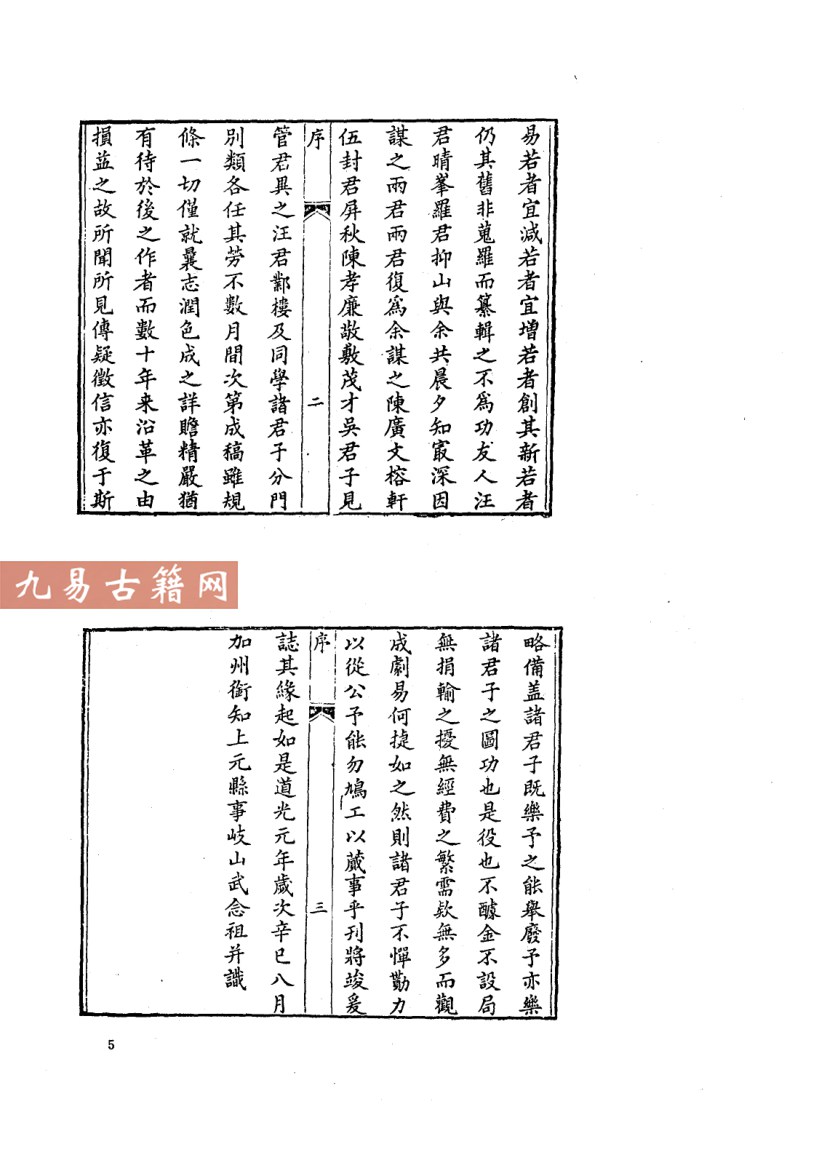 易若者宜減若者宜增若者創其新若者
仍其舊非蒐羅而纂輯之不為功友人汪
君晴峯羅君抑山與余共晨夕知寂深因
謀之雨君雨君復為余謀之陳廣文榕軒
伍封君屏秋陳孝廉啟敷茂才吳君子見
序
二
管君異之汪君鄴樓及同學諸君子分門
別類各任其勞不數月間次第成稿雖規
條一切僅就曩志潤色成之詳贍精嚴猶
有待於後之作者而數十年来沿革之由
損益之故所聞所見傳疑徵信亦復于斯
九易古籍网
略備盖諸君子既樂予之能舉廢予亦樂
諸君子之圖功也是役也不醵金不設局
無捐輸之擾無經費之繁需欵無多而觀
成劇易何捷如之然則諸君子不憚勤力
以從公予能勿鳩工以蕆事乎刊將竣爰
序
三
誌其緣起如是道光元年歲次辛巳八月
加州銜知上元縣事岐山武念祖并識
5